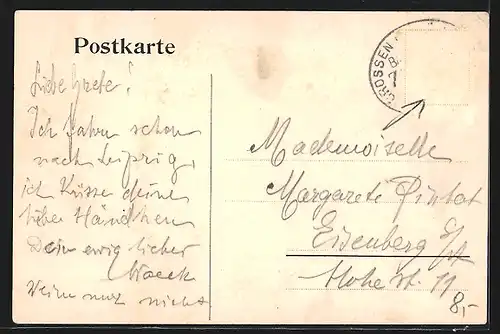 Postkarte
Liebe Grete!
Ich fahre schon
nach Leipzig,
ich küsse deine
lieben Händchen
Dein ewig lieber
Weine nur nicht
CROSSEN
Mademoiselle
Margarete
Eisenberg S/A
Hohe str. 11
8,-